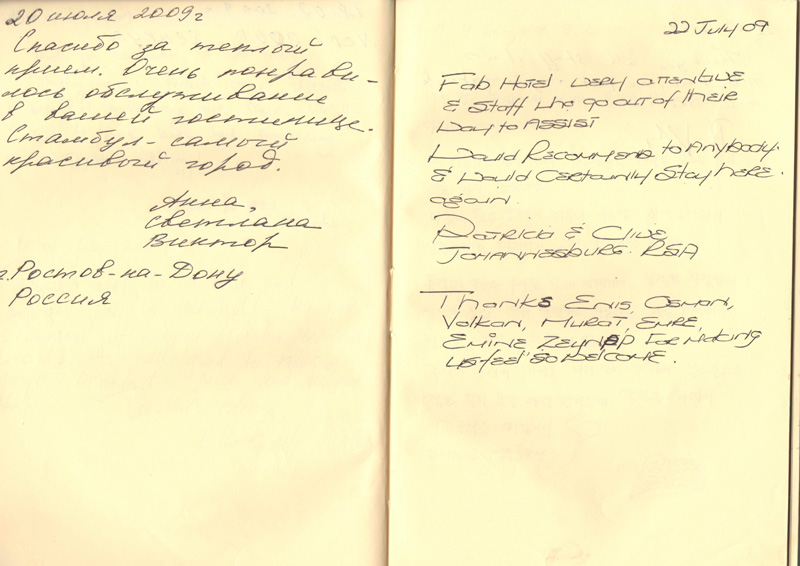 20 июля 2009г
Спасибо за теплый
прием. Очень понрави-
лось обслуживание
в вашей гостинице.
Стамбул - самый
красивый город.
Анна,
Светлана
Виктор
г.Ростов-на-Дону
Россия
22 July 09
Fab Hotel very attentive
& Staff who go out of their
way to Assist
Would Recommend to Anybody.
& Would Certainly Stay here.
again
Patricia & Clive
Johannesburg. RSA
Thanks Enis, Osman,
Volkan, Murat, Emre,
Emine Zeynep For Making
us feel so welcome.